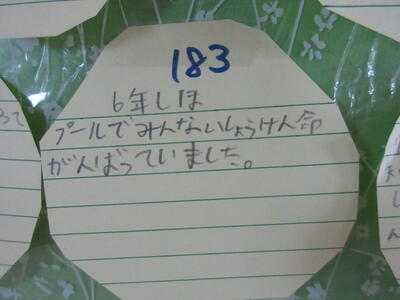 183
6年しほ
プールでみんないしょうけん命
がんばっていました。